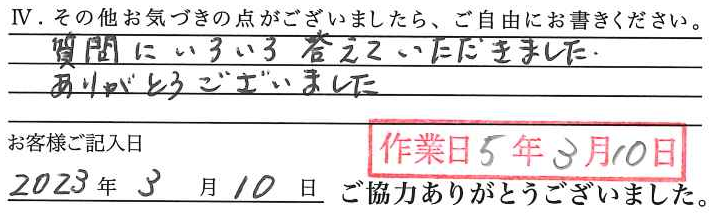 Ⅳ．その他お気づきの点がございましたら、ご自由にお書きください。
質問にいろいろ答えていただきました.
ありがとうございました
お客様ご記入日
作業日 5 年 3 月 10 日
2023 年 3 月 10 日 ご協力ありがとうございました。